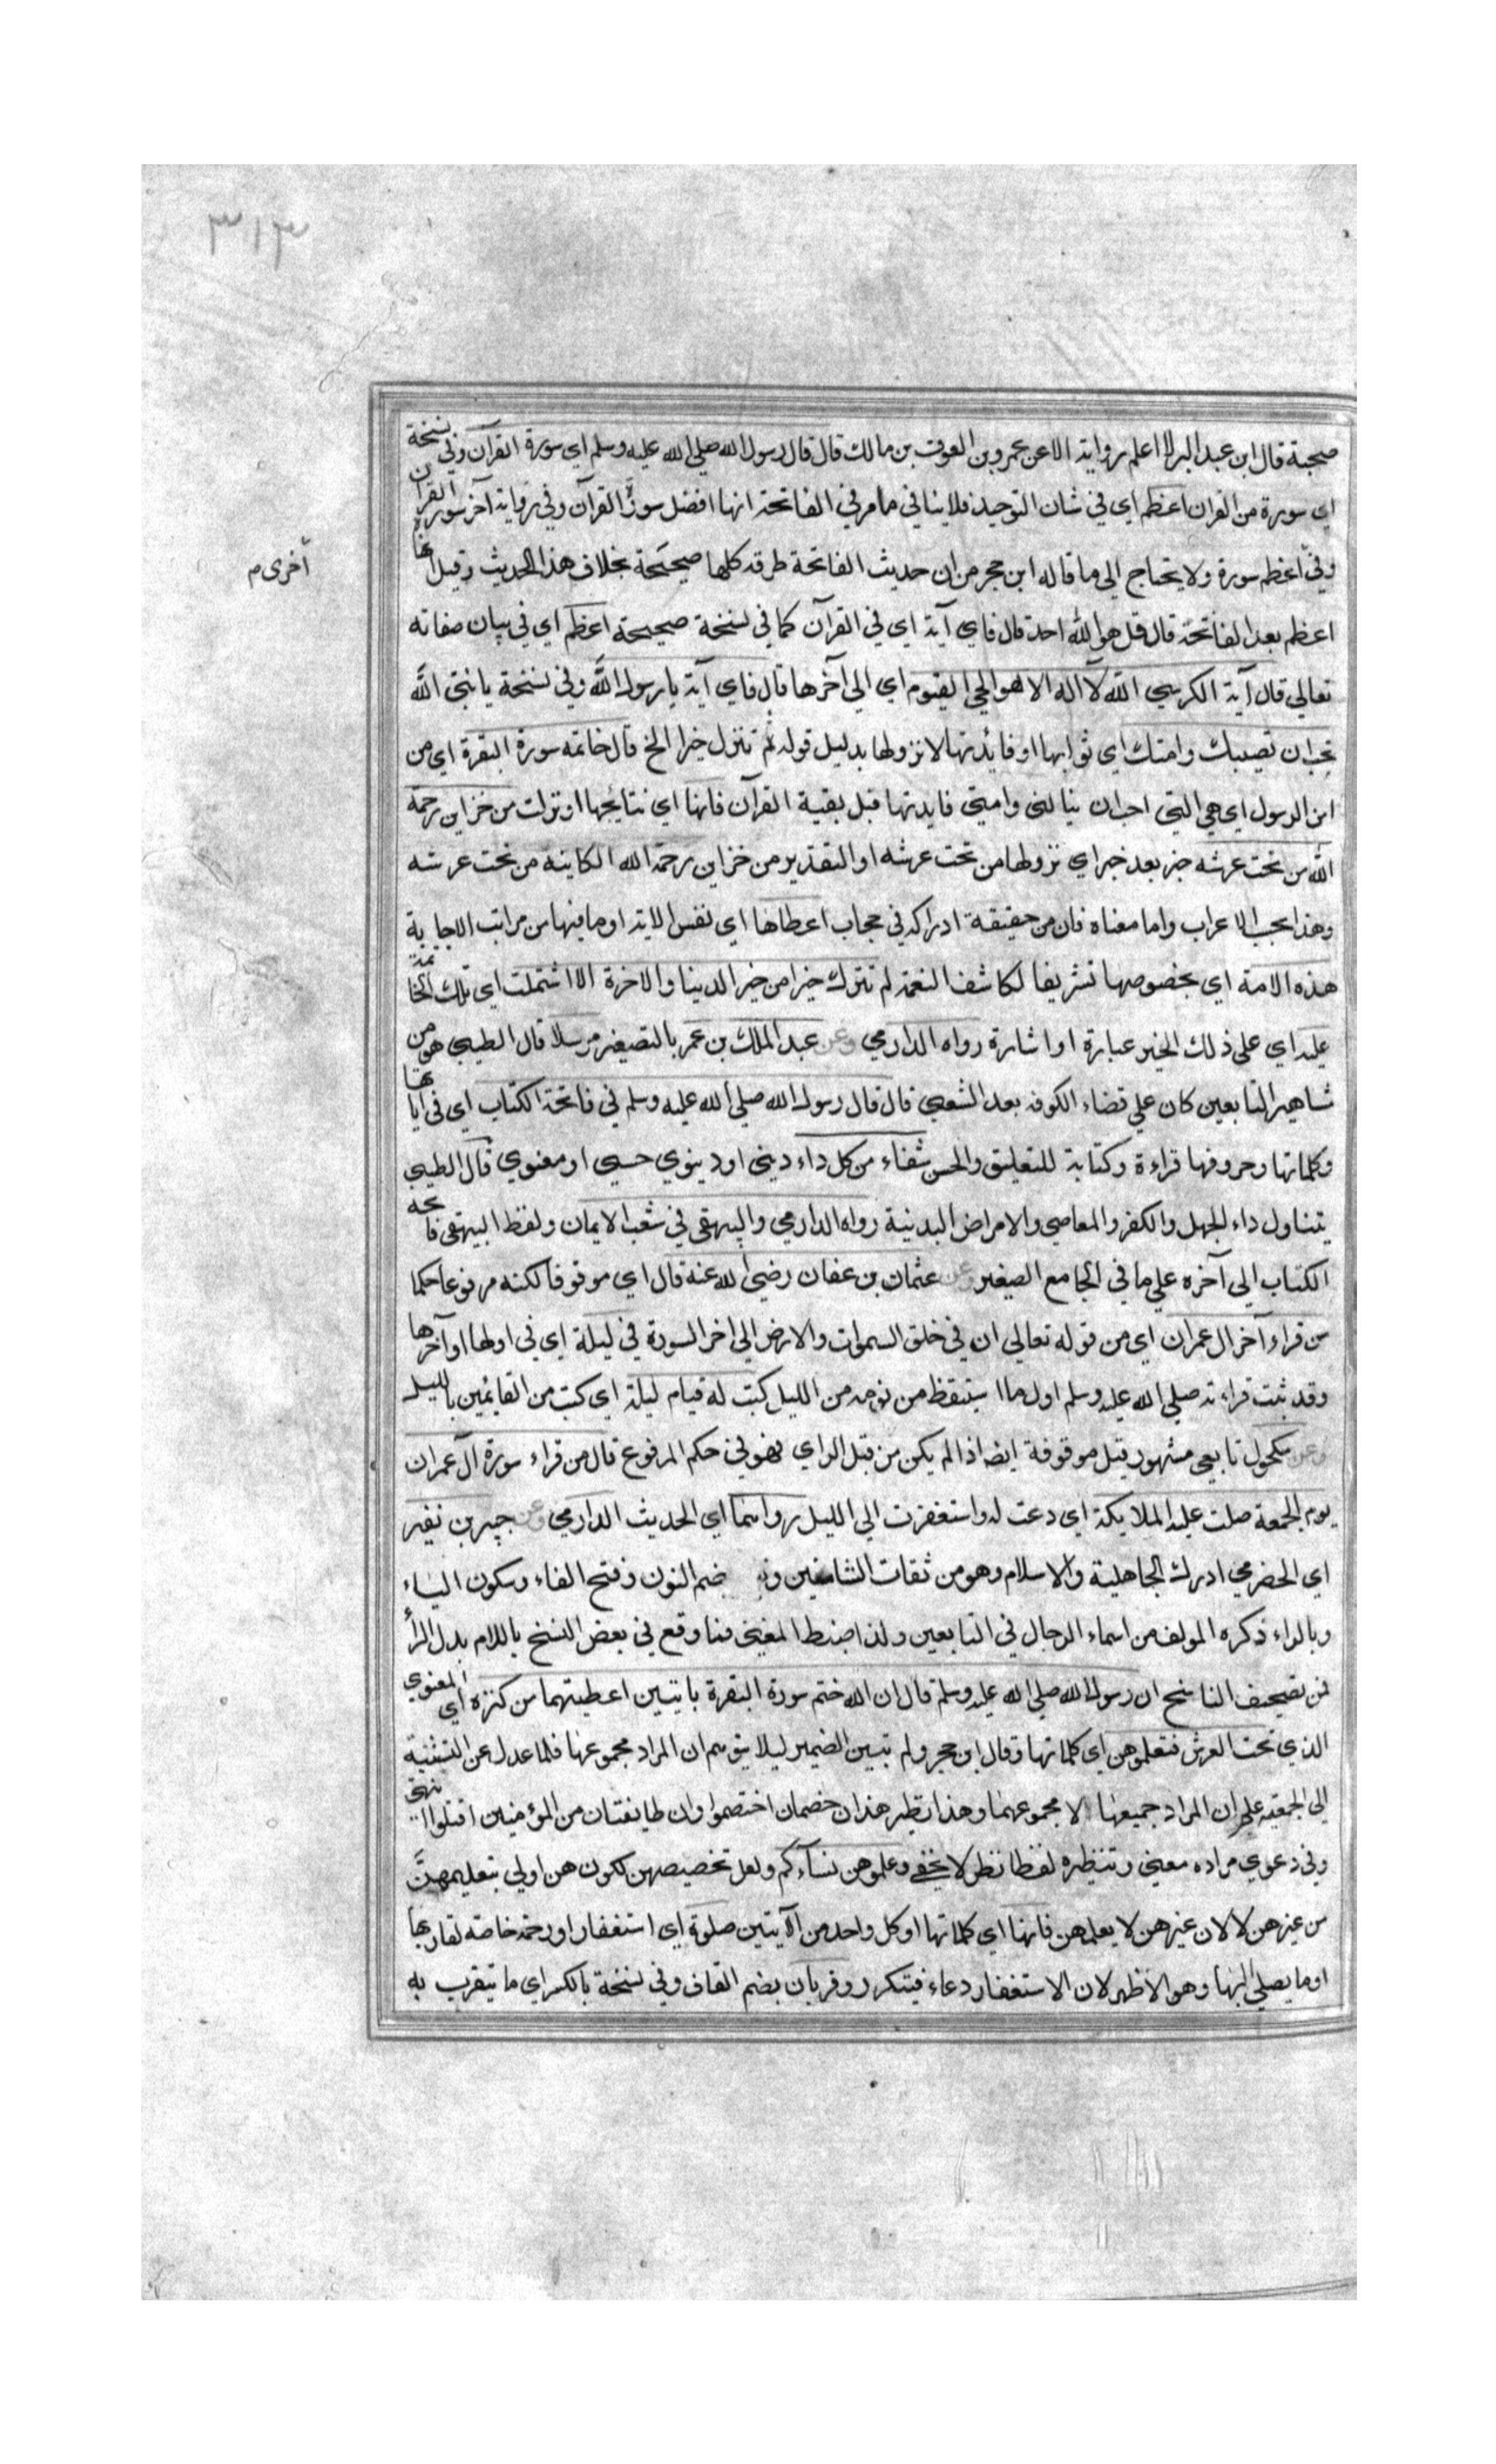 ٣١٣
صحبة قال ابن عبد البر لا اعلم روايته الا عن عمرو بن العوف بن مالك قال قال رسول الله صلى الله عليه وسلم اي سورة القرآن وفي نسخة
اي سورة من القران اعظم اي في شان التوحيد فلا ينافي ما مر في الفاتحة انها افضل سور القرآن وفي رواية آخر سورة القران
وفي اعظم سورة ولا يحتاج الى ما قاله ابن حجر من ان حديث الفاتحة طرقه كلها صحيحة بخلاف هذا الحديث وقيل انها
أخرى م
اعظم بعد الفاتحة قال قل هو الله احد قال فاي آية اي في القرآن كما في نسخة صحيحة اعظم اي في بيان صفاته
تعالي قال آية الكرسي الله لا اله الا هو الحي القيوم اي الي آخرها قال فاي آية يا رسول الله وفي نسخة يا نبي الله
تحب ان تصيبك وامتك اي ثوابها او فائدتها لا نزولها بدليل قوله ثم تنزل خيرا الخ قال خاتمه سورة البقرة اي من
امن الرسول اي هي التي احب ان ينالني وامتي فايدتها قبل بقية القرآن فانها اي نتايجها او نزلت من خزاين رحمة
الله من تحت عرشه خبر بعد خبر اي نزولها من تحت عرشه او التقدير من خزاين رحمة الله الكاينة من تحت عرشه
وهذا بحسب الاعراب واما معناه فان من حقيقة ادراكه في حجاب اعطاها اي نفس الاية او ما فيها من مراتب الاجابة
هذه الامة اي بخصوصها تشريفا لكاشف الغمة لم تترك خيرا من خير الدنيا والاخرة الا اشتملت اي تلك الخاتمة
عليه اي على ذلك الخير عبارة او اشارة رواه الدارمي وعن عبد الملك بن عمر بالتصغير مرسلا قال الطيبي هو من
مشاهير التابعين كان علي قضاء الكوفه بعد الشعبي قال قال رسول الله صلي الله عليه وسلم في فاتحة الكتاب اي في اياتها
وكلماتها وحروفها قراءة وكتابة للتعليق والحسن شفاء من كل داء ديني او دينوي حسي او معنوي قال الطيبي
يتناول داء الجهل والكفر والمعاصي والامراض البدنية رواه الدارمي والبيهقي في شعب الايمان ولفظ البيهقي فاتحه
الكتاب الى آخره علي ما في الجامع الصغير وعن عثمان بن عفان رضي الله عنه قال اي موقوفا لكنه مرفوعا حكما
من قراء آخر ال عمران اي من قوله تعالي ان في خلق السموات والارض الي اخر السورة في ليلة اي في اولها او آخرها
وقد ثبت قراءته صلي الله عليه وسلم اول ما استيقظ من نومه من الليل كتب له قيام ليلة اي كتبت من القايمين بالليل
وعن مكحول تابعي مشهور قيل موقوفة ايضا اذا لم يكن من قبل الراي فهو في حكم المرفوع قال من قراء سورة آل عمران
يوم الجمعة صلت عليه الملايكة اي دعت له واستغفرت الي الليل رواهما اي الحديث الدارمي وعن جبير بن نفير
اي الحضرمي ادرك الجاهلية والاسلام وهو من ثقات الشاميين ضم النون وفتح الفاء وسكون الياء
وبالراء ذكره المولف من اسماء الرجال في التابعين ولذا ضبط المغني فما وقع في بعض النسخ باللام بدل الرأ
فمن تصحيف الناسخ ان رسول الله صلي الله عليه وسلم قال ان الله ختم سورة البقرة بايتين اعطيتهما من كنزه اي المعنوي
الذي تحت العرش فتعلموهن اي كلماتها وقال ابن حجر ولم تبين الضمير ليلا يتوهم ان المراد مجموعها فلما عدل عن التثنية
الي الجمعية علم ان المراد جميعها لا مجموعهما وهذا نظير هذان خصمان اختصموا وان طايفتان من المؤمنين اقتلوا انتهى
وفي دعوي مراده معني وتنظيره لفظا نظر لا يخفي وعلموهن نسآءكم ولعل تخصيصهن لكون هن اولي بتعليمهن
من غيرهن لا لان غيرهن لا يعلمهن فانها اي كلماتها او كل واحد من الآيتين صلوة اي استغفار او رحمة خاصه لقاريها
او ما يصلي اليها وهو الاظهر لان الاستغفار دعاء فيتكرر وقربان بضم القاف وفي نسخة بالكسر اي ما يتقرب به